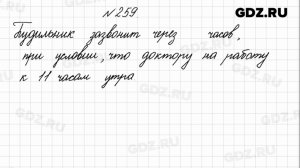 №259
GDZ.RU
Будильник зазвонит через часов,
при условии, что доктору на работу
к 11 часам утра